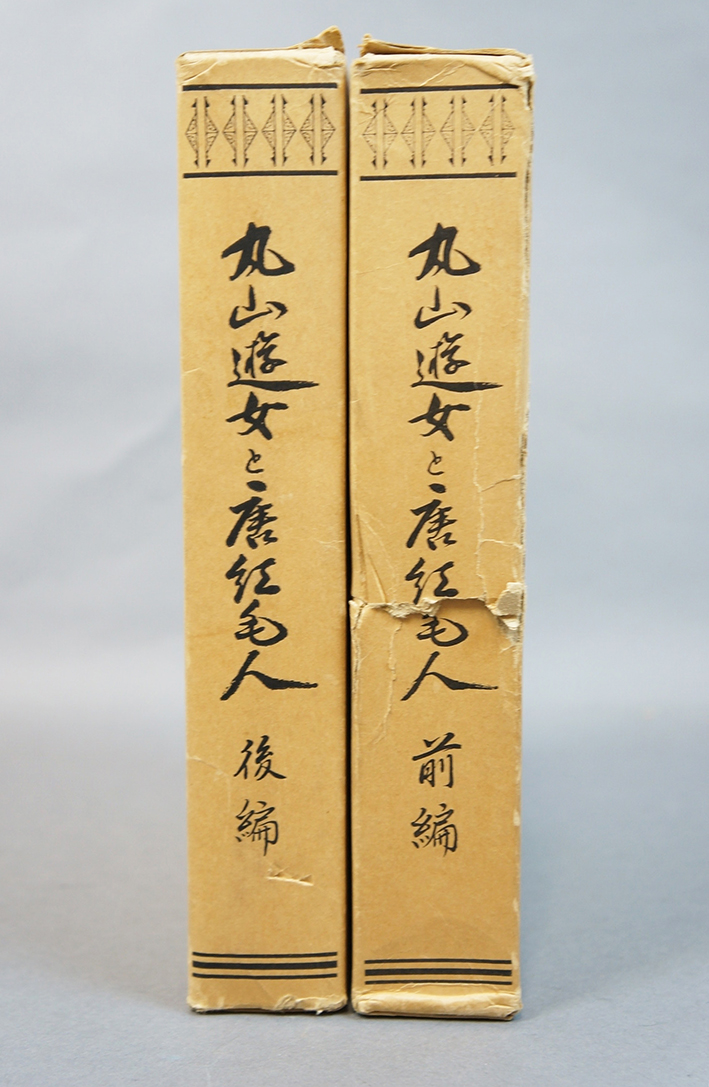 丸山遊女と唐紅毛人 前編
丸山遊女と唐紅毛人 後編